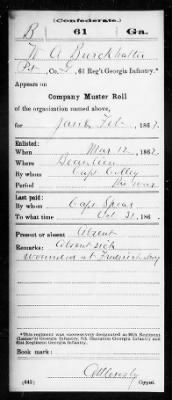 (Confederate.)
B 61 Ga.
W A Burckhalter
Pvt, Co. , 61 Reg't Georgia Infantry.*
Appears on
Company Muster Roll
of the organization named above,
for Jan & Feb, 1863.
Enlisted:
When Mar 12, 1862.
Where
By whom Capt
Period the war
Last paid:
By whom Capt Spear
To what time Oct 31, 186 .
Present or absent Absent
Remarks: Absent sick
wounded at Fredericksburg
*This regiment was successively designated as 26th Regiment
Georgia Infantry, 7th Battalion Georgia Infantry and
61st Regiment Georgia Infantry.
Book mark:
(642)
Copyist.